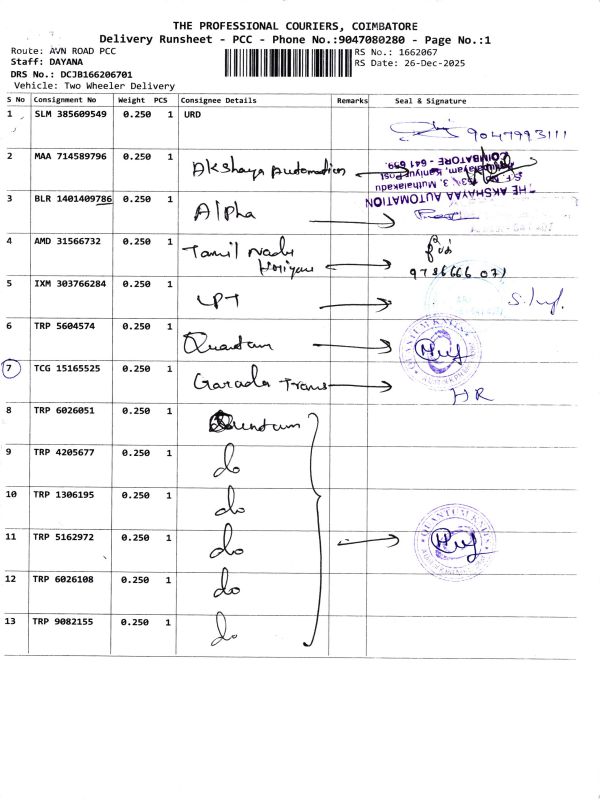 THE PROFESSIONAL COURIERS, COIMBATORE
Delivery Runsheet - PCC - Phone No.:9047080280 - Page No.:1
Route: AVN ROAD PCC
RS No.: 1662067
Staff: DAYANA
RS Date: 26-Dec-2025
DRS No.: DCJB166206701
Vehicle: Two Wheeler Delivery
S No Consignment No Weight PCS Consignee Details Remarks Seal & Signature
1 SLM 385609549 0.250 1 URD 9047993111
2 MAA 714589796 0.250 1 Akshaya Automation
COIMBATORE - 641 659.
Kaniyur Post
3, Muthalakadu
THE AKSHAYAA AUTOMATION
3 BLR 1401409786 0.250 1 Alpha
4 AMD 31566732 0.250 1 Tamil Nadu
5 IXM 303766284 0.250 1 LPT
6 TRP 5604574 0.250 1 Quantum
7 TCG 15165525 0.250 1 Garada Trans HR
8 TRP 6026051 0.250 1 Quantum
9 TRP 4205677 0.250 1 do
10 TRP 1306195 0.250 1 do
11 TRP 5162972 0.250 1 do QUANTUM KNITS
12 TRP 6026108 0.250 1 do
13 TRP 9082155 0.250 1 do